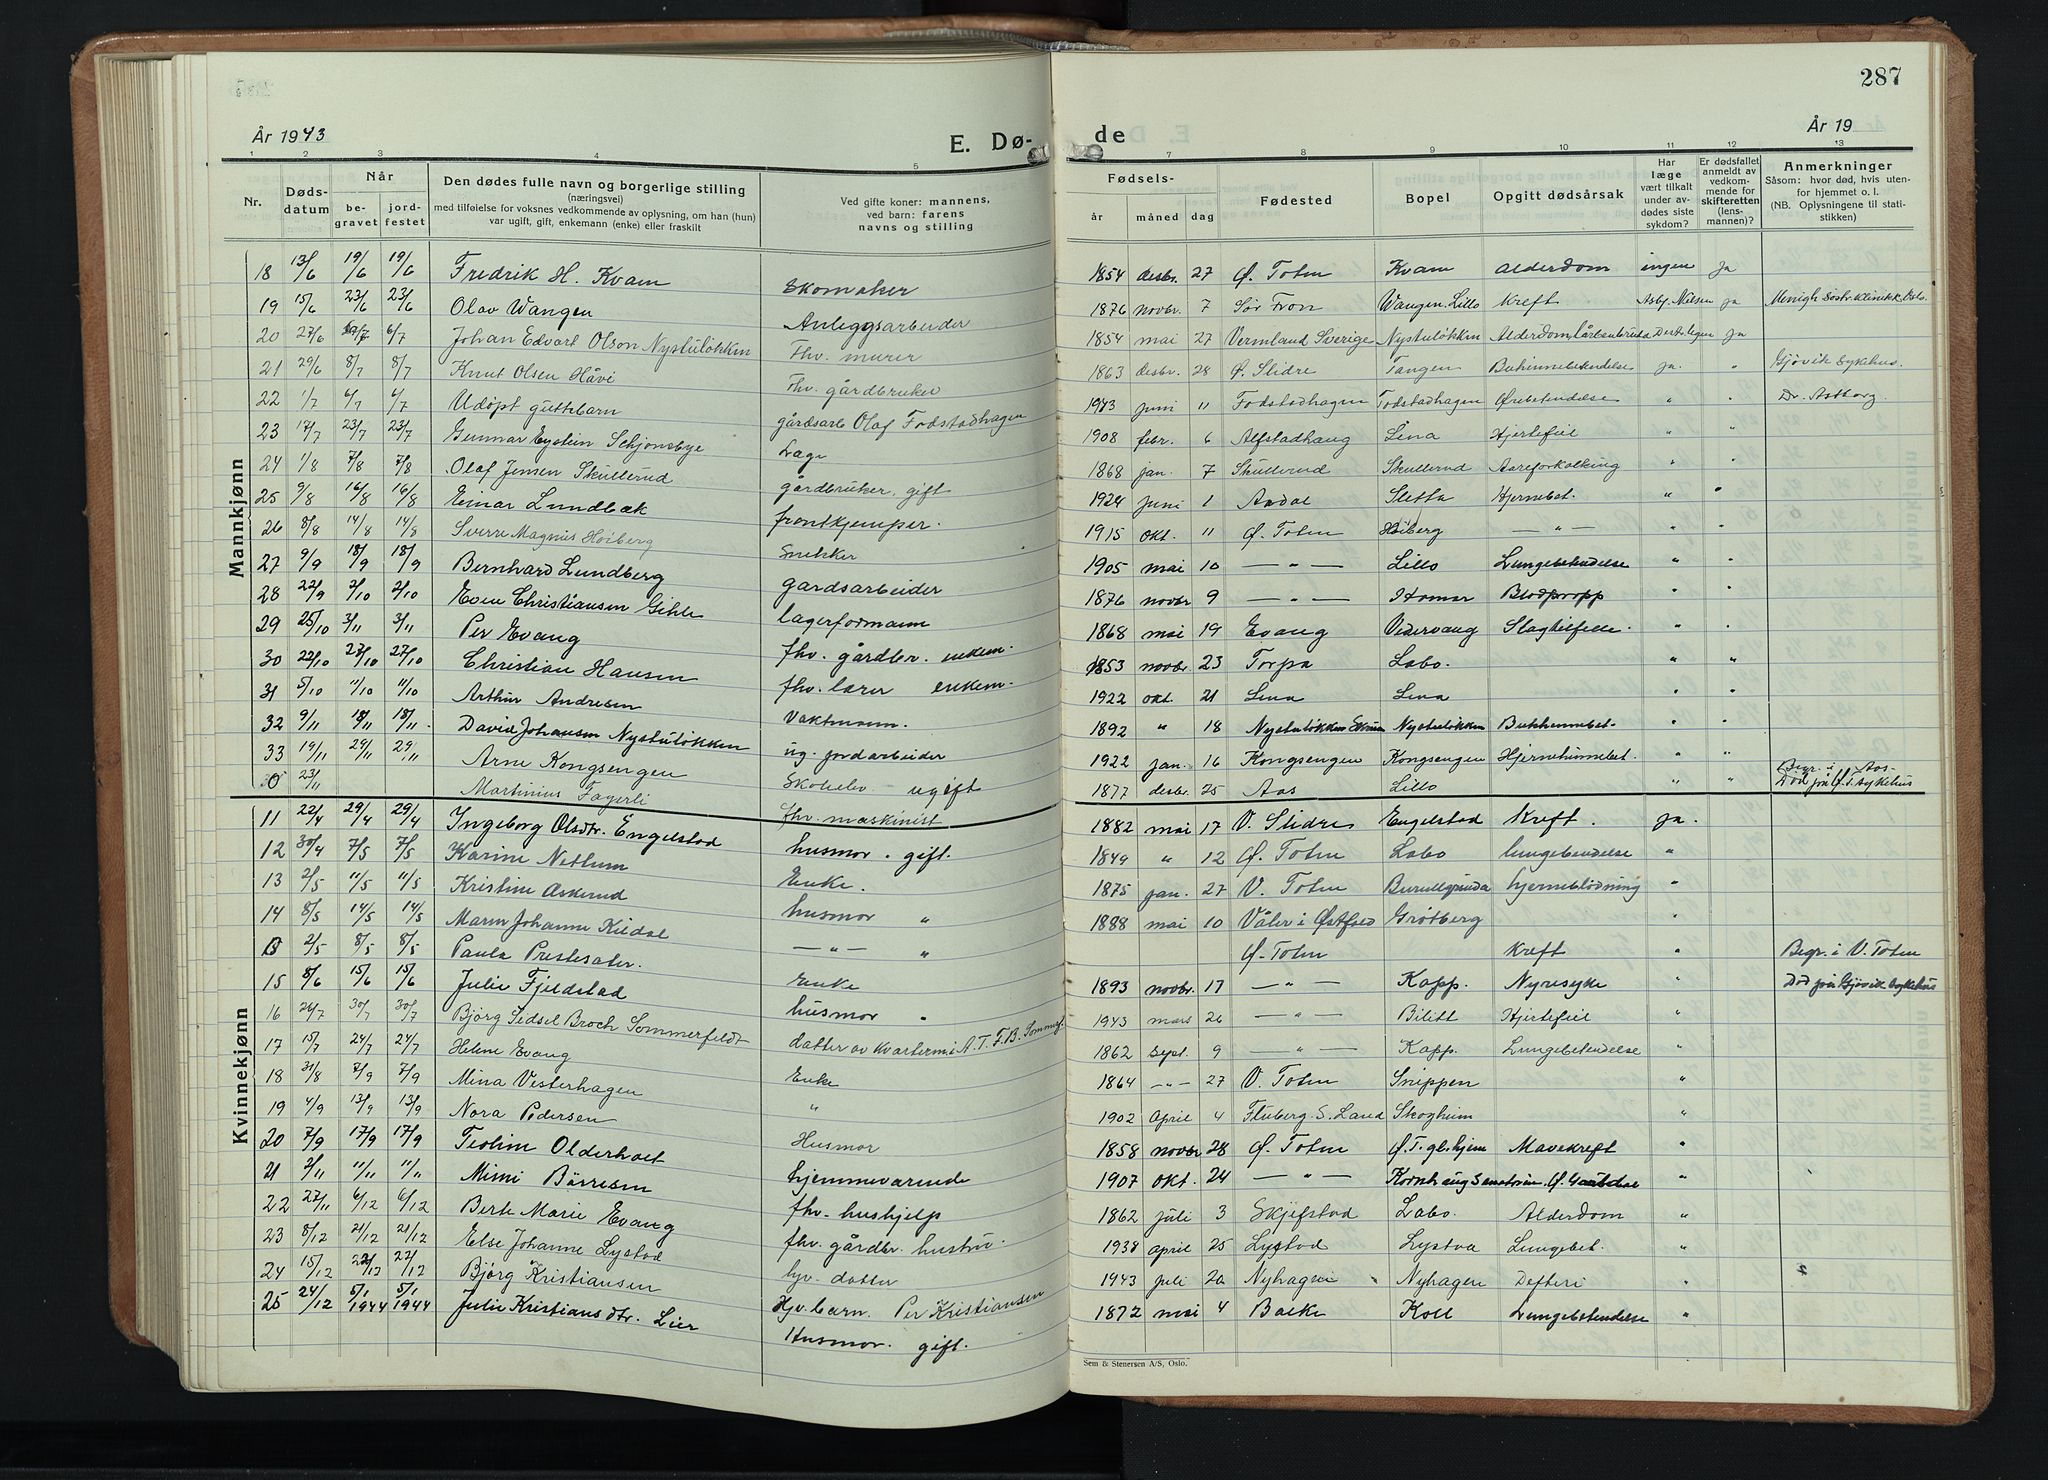 287
År 1943 E. Dø- de År 19
1 2 3 4 5 7 8 9 10 11 12 13
Nr. Døds-datum Når be-gravet jord-festet Den dødes fulle navn og borgerlige stilling (næringsvei) med tilføielse for voksnes vedkommende av oplysning, om han (hun) var ugift, gift, enkemann (enke) eller fraskilt Ved gifte koner: mannens, ved barn: farens navns og stilling Fødsels- år måned dag Fødested Bopel Opgitt dødsårsak Har læge vært tilkalt under av-dødes siste sykdom? Er dødsfallet anmeldt av vedkom-mende for skifteretten (lens-mannen)? Anmerkninger Såsom: hvor død, hvis uten-for hjemmet o. l. (NB. Oplysningene til stati-stikken)
Mannkjønn
18 13/6 19/6 19/6 Fredrik H. Kvam Skomaker 1854 desbr. 27 Ø. Toten Kvam Alderdom ingen ja
19 15/6 23/6 23/6 Olav Wangen Anleggsarbeider 1876 novbr. 7 Sør Fron Wangen, Lillo Kreft Asbj. Nilsen ja
20 27/6 6/7 Johan Edvart Olson Nystuløkken Fhv. murer 1854 mai 27 Vermland Sverige Nystuløkken Alderdom lårbensbrudd ja
21 29/6 8/7 8/7 Knut Olsen Håvi Fhv. gårdbruker 1863 desbr. 28 Ø. Slidre Tangen Bukhinnebetendelse ja. " Gjøvik Sykehus.
22 1/7 6/7 6/7 Udøpt guttebarn gårdsarb Olaf Fodstadhagen 1943 juni 11 Fodstadhagen Fodstadhagen Ørebetendelse " "
23 17/7 23/7 23/7 Gunnar Eystein Schjønsbye Læge 1908 febr. 6 Alfstadhaug Lena Hjertefeil " "
24 1/8 7/8 7/8 Olaf Jensen Skullerud gårdbruker, gift 1868 jan. 7 Skullerud Skullerud Aareforkalking " "
25 9/8 16/8 16/8 Einar Lundbæk frontkjemper. 1924 juni 1 Sletta Hjernebet. " "
26 8/8 14/8 14/8 Sverre Magnus Høiberg Snekker 1915 okt. 11 Ø. Toten Høiberg " — " "
27 9/9 18/9 18/9 Bernhard Lundberg gardsarbeider 1905 mai 10 — " — Lillo Lungebetendelse " "
28 22/9 2/10 2/10 Even Christiansen Gihle lagerformann 1876 novbr 9 — " — Hamar Blodpropp " "
29 25/10 3/11 3/11 Per Evang fhv. gårdbr. enkem. 1868 mai 19 Evang Vedervang Slagtilfelle. " "
30 22/10 27/10 27/10 Christian Hansen fhv. lærer enkem. 1853 novbr. 23 Torpa Labo. " "
31 5/10 11/10 11/10 Arthur Andresen Vaktmann. 1922 okt. 21 Lena Lena " "
32 9/11 18/11 18/11. David Johansen Nystuløkken ug. jordarbeider 1892 " 18 Nystuløkken Nystuløkken Bukhinnebet. " "
33 19/11 29/11 29/11 Arne Kongsengen Skoleelev ugift 1922 jan. 16 Kongsengen Kongsengen Hjernehinnebet. " "
0 23/11 Martinius Fagerli fhv. maskinist 1877 desbr. 25 Aas Lillo " " Begr. i Aas. Død på Ø. T. sykehus
Kvinnekjønn
11 22/4 29/4 29/4 Ingeborg Olsdtr. Engelstad husmor. gift. 1882 mai 17 V. Slidre Engelstad Kreft. ja.
12 30/4 7/5 7/5 Karine Nettum Enke. 1849 " 12 Ø. Toten Labo lungebetendelse "
13 2/5 11/5 11/5 Kristine Askerud husmor " 1875 jan. 27 V. Toten hjerneblødning "
14 8/5 14/5 14/5 Maren Johanne Kildal — " — " 1888 mai 10 Våler i Østfold Grøtberg "
0 2/5 8/5 8/5 Paula Prestesæter. Enke Ø. Toten Kreft " Begr. i V. Toten
15 8/6 15/6 15/6 Julie Fjeldstad husmor " 1893 novbr. 17 — " — Kapp. Nyresyke " Død på Gjøvik Sykehus
16 26/7 30/7 30/7 Bjørg Sidsel Broch Sommerfeldt datter av Kvarterm. A. T. F. B. Sommerf. 1943 mars 26 — " — Bilitt Hjertefeil "
17 15/7 24/7 24/7 Helene Evang Enke 1862 sept. 9 — " — Kapp. Lungebetendelse
18 31/8 7/9 7/9 Mina Vesterhagen " 1864 — " — 27 V. Toten Snippen "
19 4/9 13/9 13/9 Nora Pedersen Husmor 1902 april 4 Fluberg S. Land Skogheim "
20 7/9 17/9 17/9 Teoline Olderhoet hjemmeværende 1858 novbr 28 Ø. Toten Ø. T. gl. hjem Mavekreft "
21 2/11 11/11 11/11 Mimi Børresen fhv. hushjelp 1907 okt. 24 — " — Kornhaug Sanatorium "
22 27/11 6/12 6/12 Berte Marie Evang fhv. gårdbr. hustru. 1862 juli 3 Skjefstad Labo. Alderdom "
23 8/12 21/12 21/12 Else Johanne Lystad hjv. datter 1938 april 25 Lystad Lystad Lungebet. "
24 15/12 22/12 22/12 Bjørg Kristiansen Hjv. barn. Per Kristiansen 1943 juli 20 Nyhagen Nyhagen Difteri "
25 24/12 5/1 1944 5/1 1944 Julie Kristiansdtr. Lier Husmor. gift. 1872 mai 4 Balke Koll Lungebetendelse "
Sem & Stenersen A/S, Oslo.